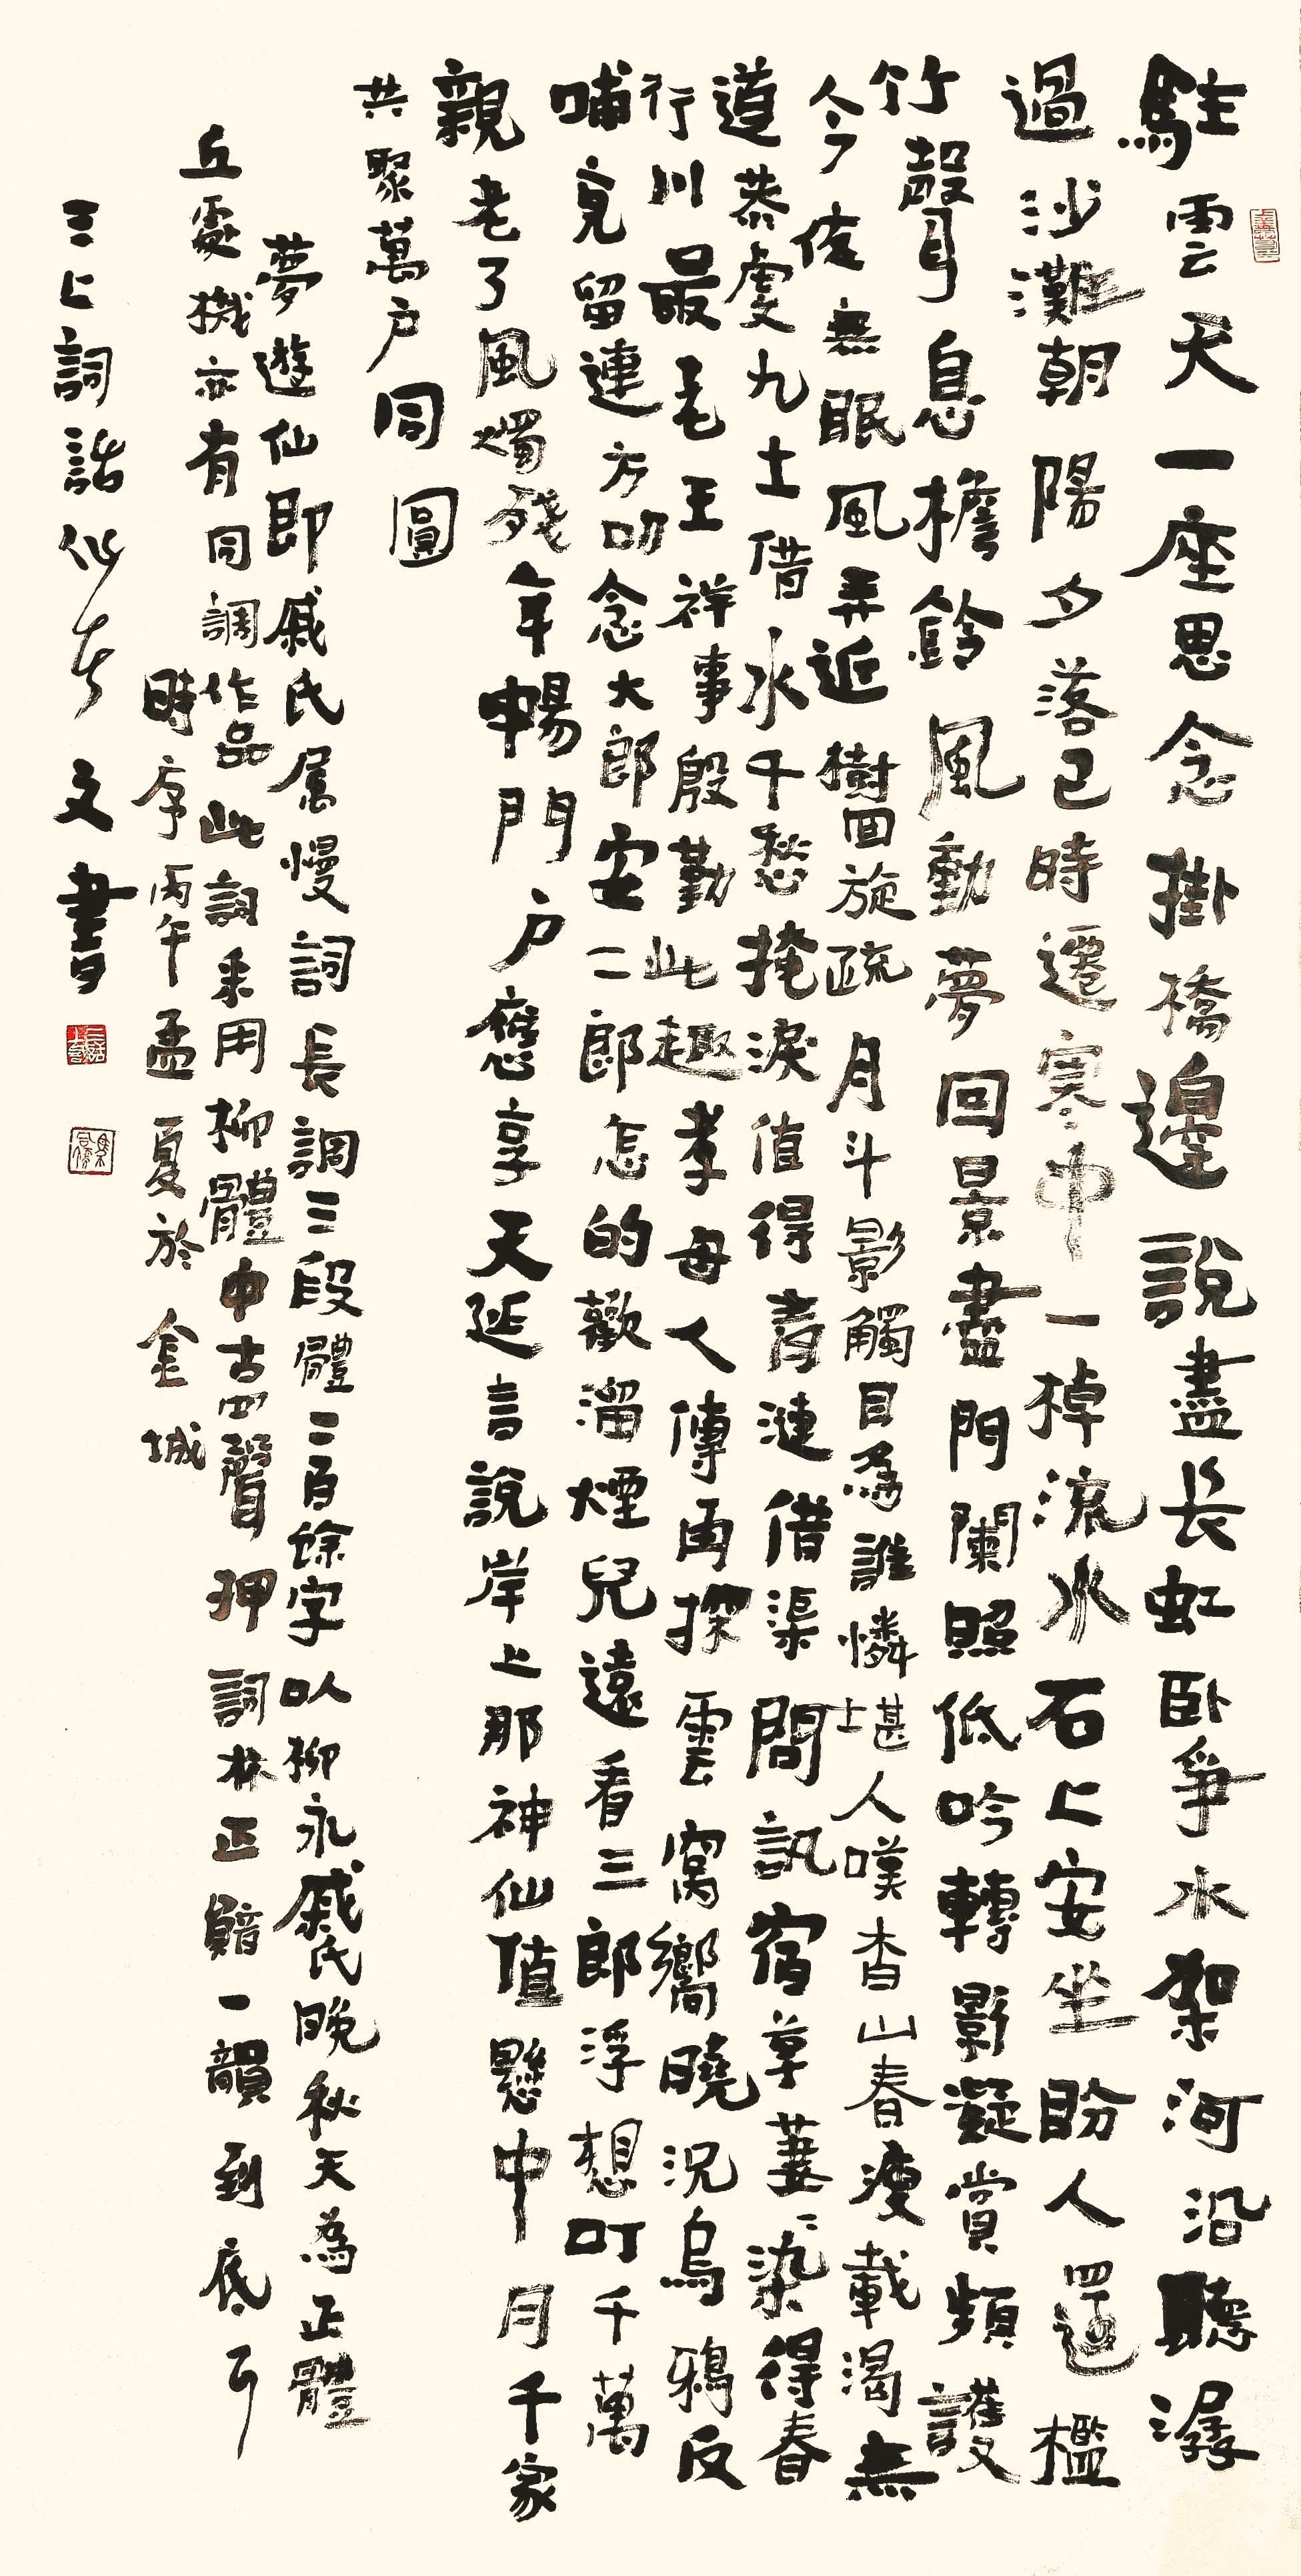 駐雲天一座思念掛橋邊說盡长虹卧爭水架河沿聽潺
過沙灘朝陽夕落已時遷寒中一棹流水石上安坐盼人還檻
竹聲息檐鈴風動夢回景盡門闌照低吟轉影凝賞頻護
今夜無眠風弄近樹回旋疏月斗影觸目為誰憐堪人嘆杳山春瘦載渴無
道恭虔九士借水千愁掩淚值得青漣借渠問訊宿草萋萋染得春
行川最毛王祥事殷勤此趣孝母人傳再探雲窩嚮曉況烏鴉反
哺竟留連方叨念大郎安二郎怎的歡溜煙兒遠看三郎浮想叮千萬
親老了風燭殘年暢門户應享天延言說岸上那神仙值懸中月千家
共聚萬户同圓
夢遊仙即戚氏属慢詞長調三段體二百餘字以柳永戚氏晚秋天為正體
丘處機亦有同調作品此詞采用柳體中古四聲押詞林正韻一韻到底了
時序丙午孟夏於金城
三上詞話 文書